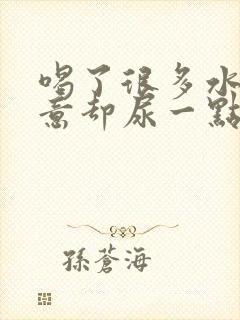 喝了很多水
意却尿一點
孫蒼海